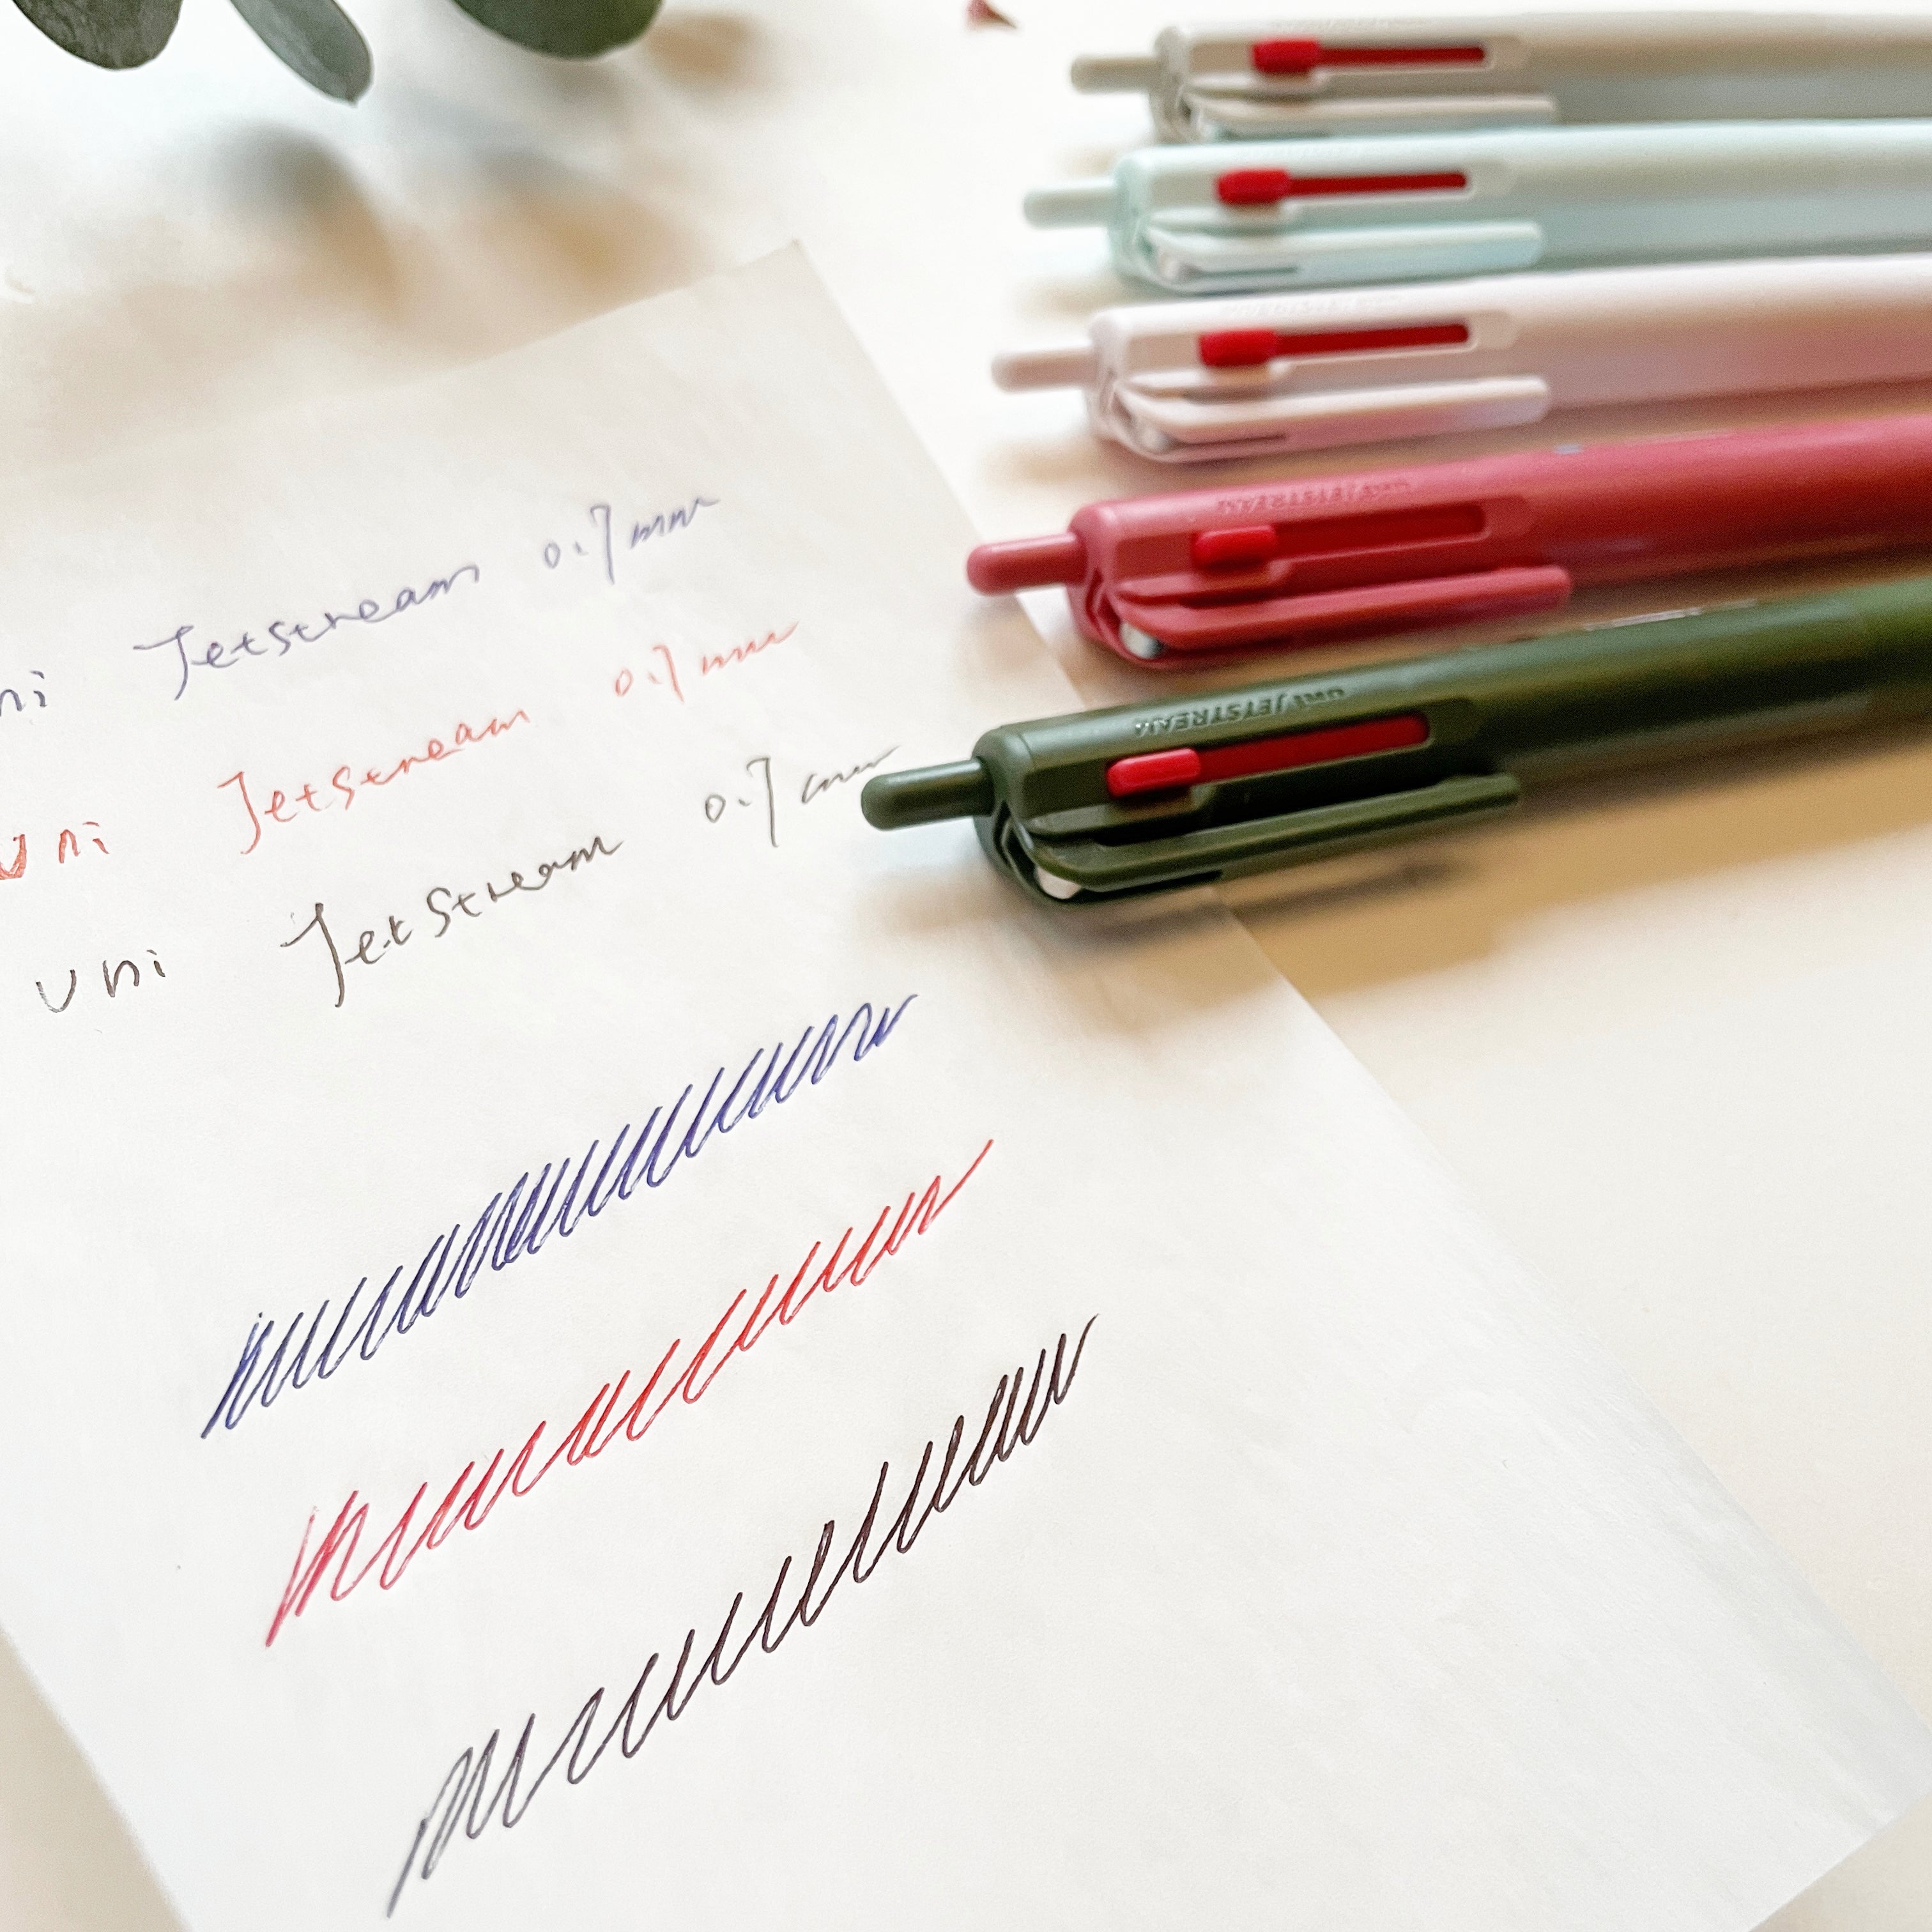 ni Jetstream 0.7mm
uni Jetstream 0.7mm
uni JetStream 0.7mm
uni JETSTREAM
uni JETSTREAM